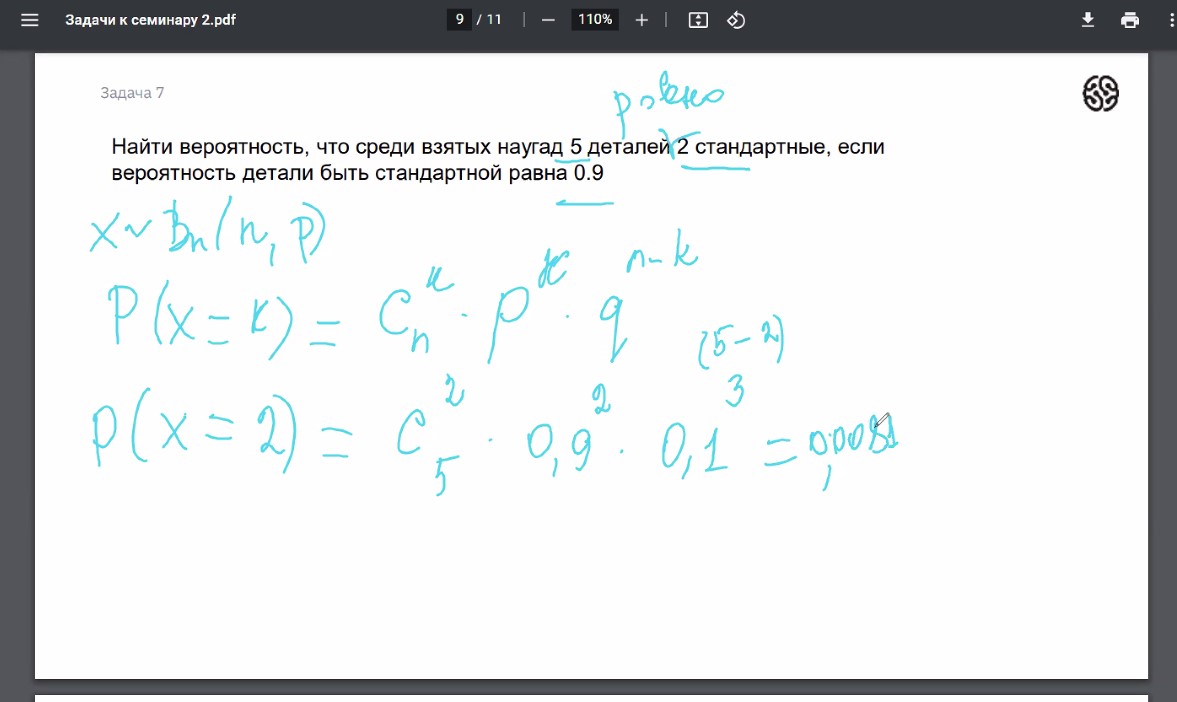 Задачи к семинару 2.pdf
9 / 11
110%
Задача 7
равно
Найти вероятность, что среди взятых наугад 5 деталей 2 стандартные, если
вероятность детали быть стандартной равна 0.9
X ~ Bn(n, p)
P(X = k) = C_n^k · p^k · q^{n-k}
(5-2)
P(X = 2) = C_5^2 · 0,9^2 · 0,1^3 = 0,0081